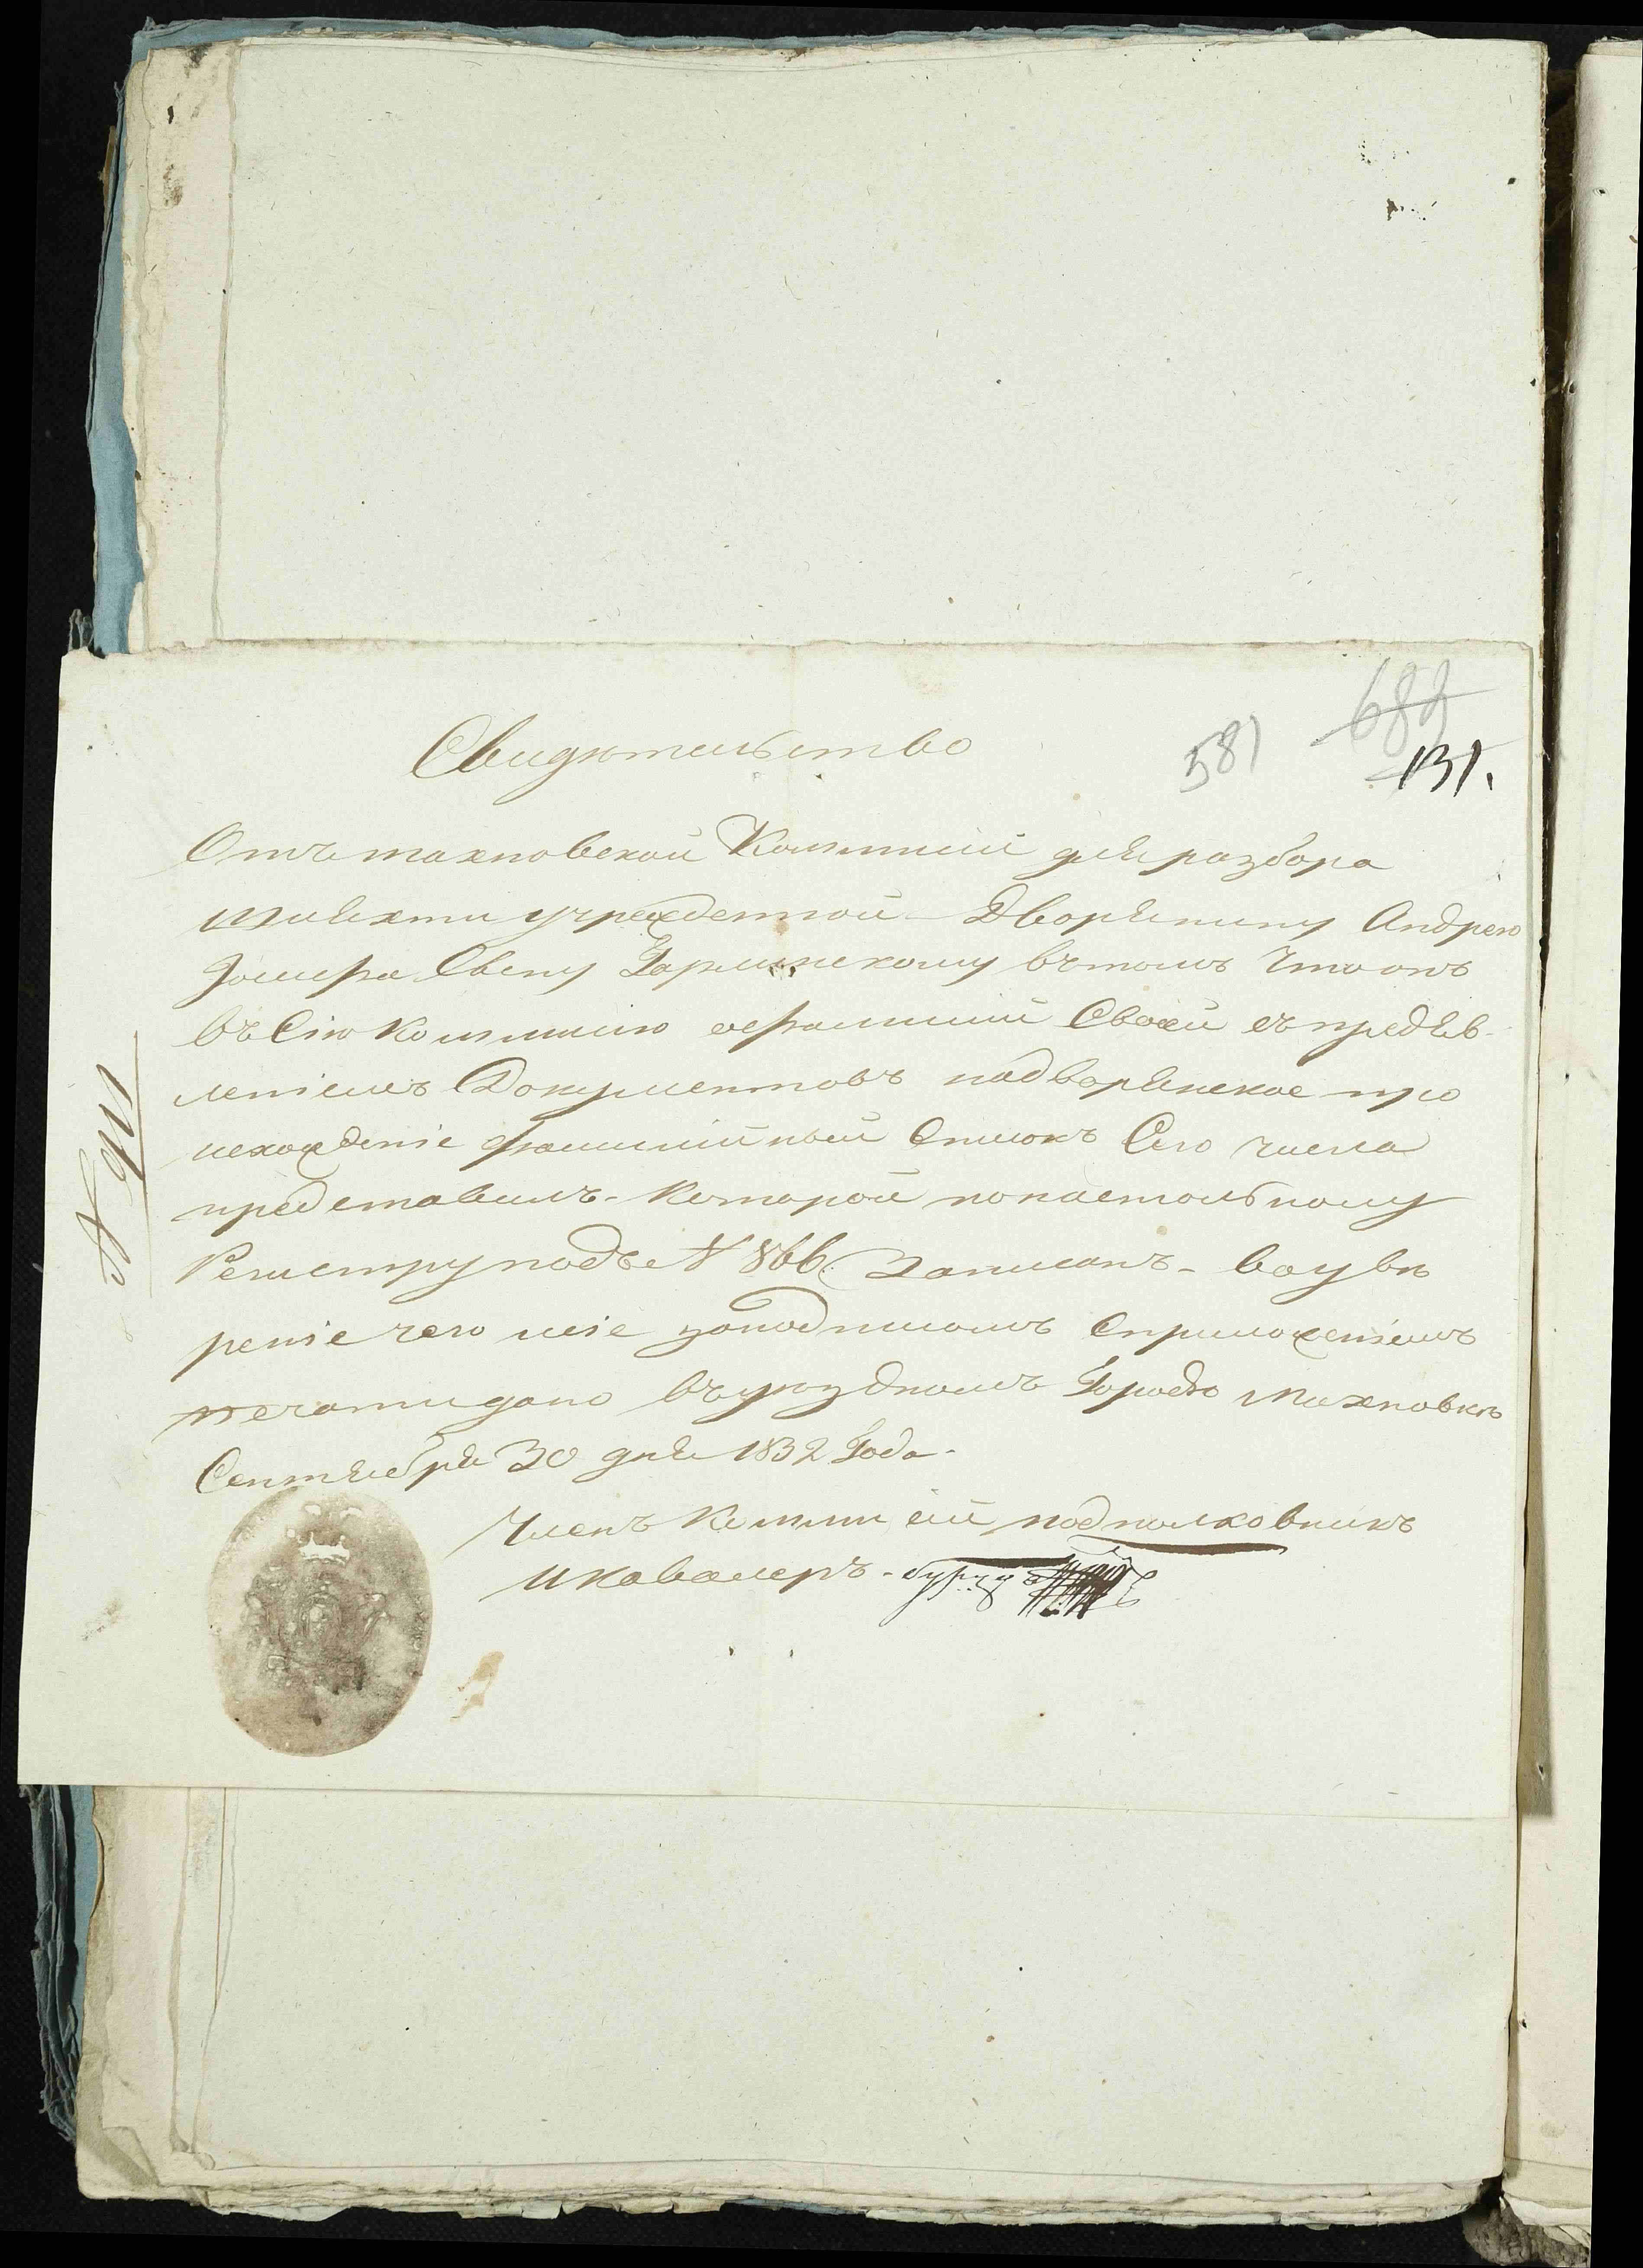 Свидѣтельство
581
689
131.
Отъ махновской Коммиссіи для разбора
шляхти учрежденной Дворянину Андрею
Сыну Гарлинскому вътомъ Что онъ
въ Сію Коммисию офамилии Своей съ предъяв-
леніемъ Документовъ надворянское про
исхожденіе фамилійный Списокъ Сего числа
представилъ - Которой понастольному
Регистру подъ № 866 Записанъ - воувѣ
реніе чего сіе заподписомъ Сприложеніемъ
печати дано въуѣздномъ Городѣ Махновкѣ
Сентября 30 дня 1832 Года -
Членъ Коммисіи подполковникъ
икавалеръ -
№